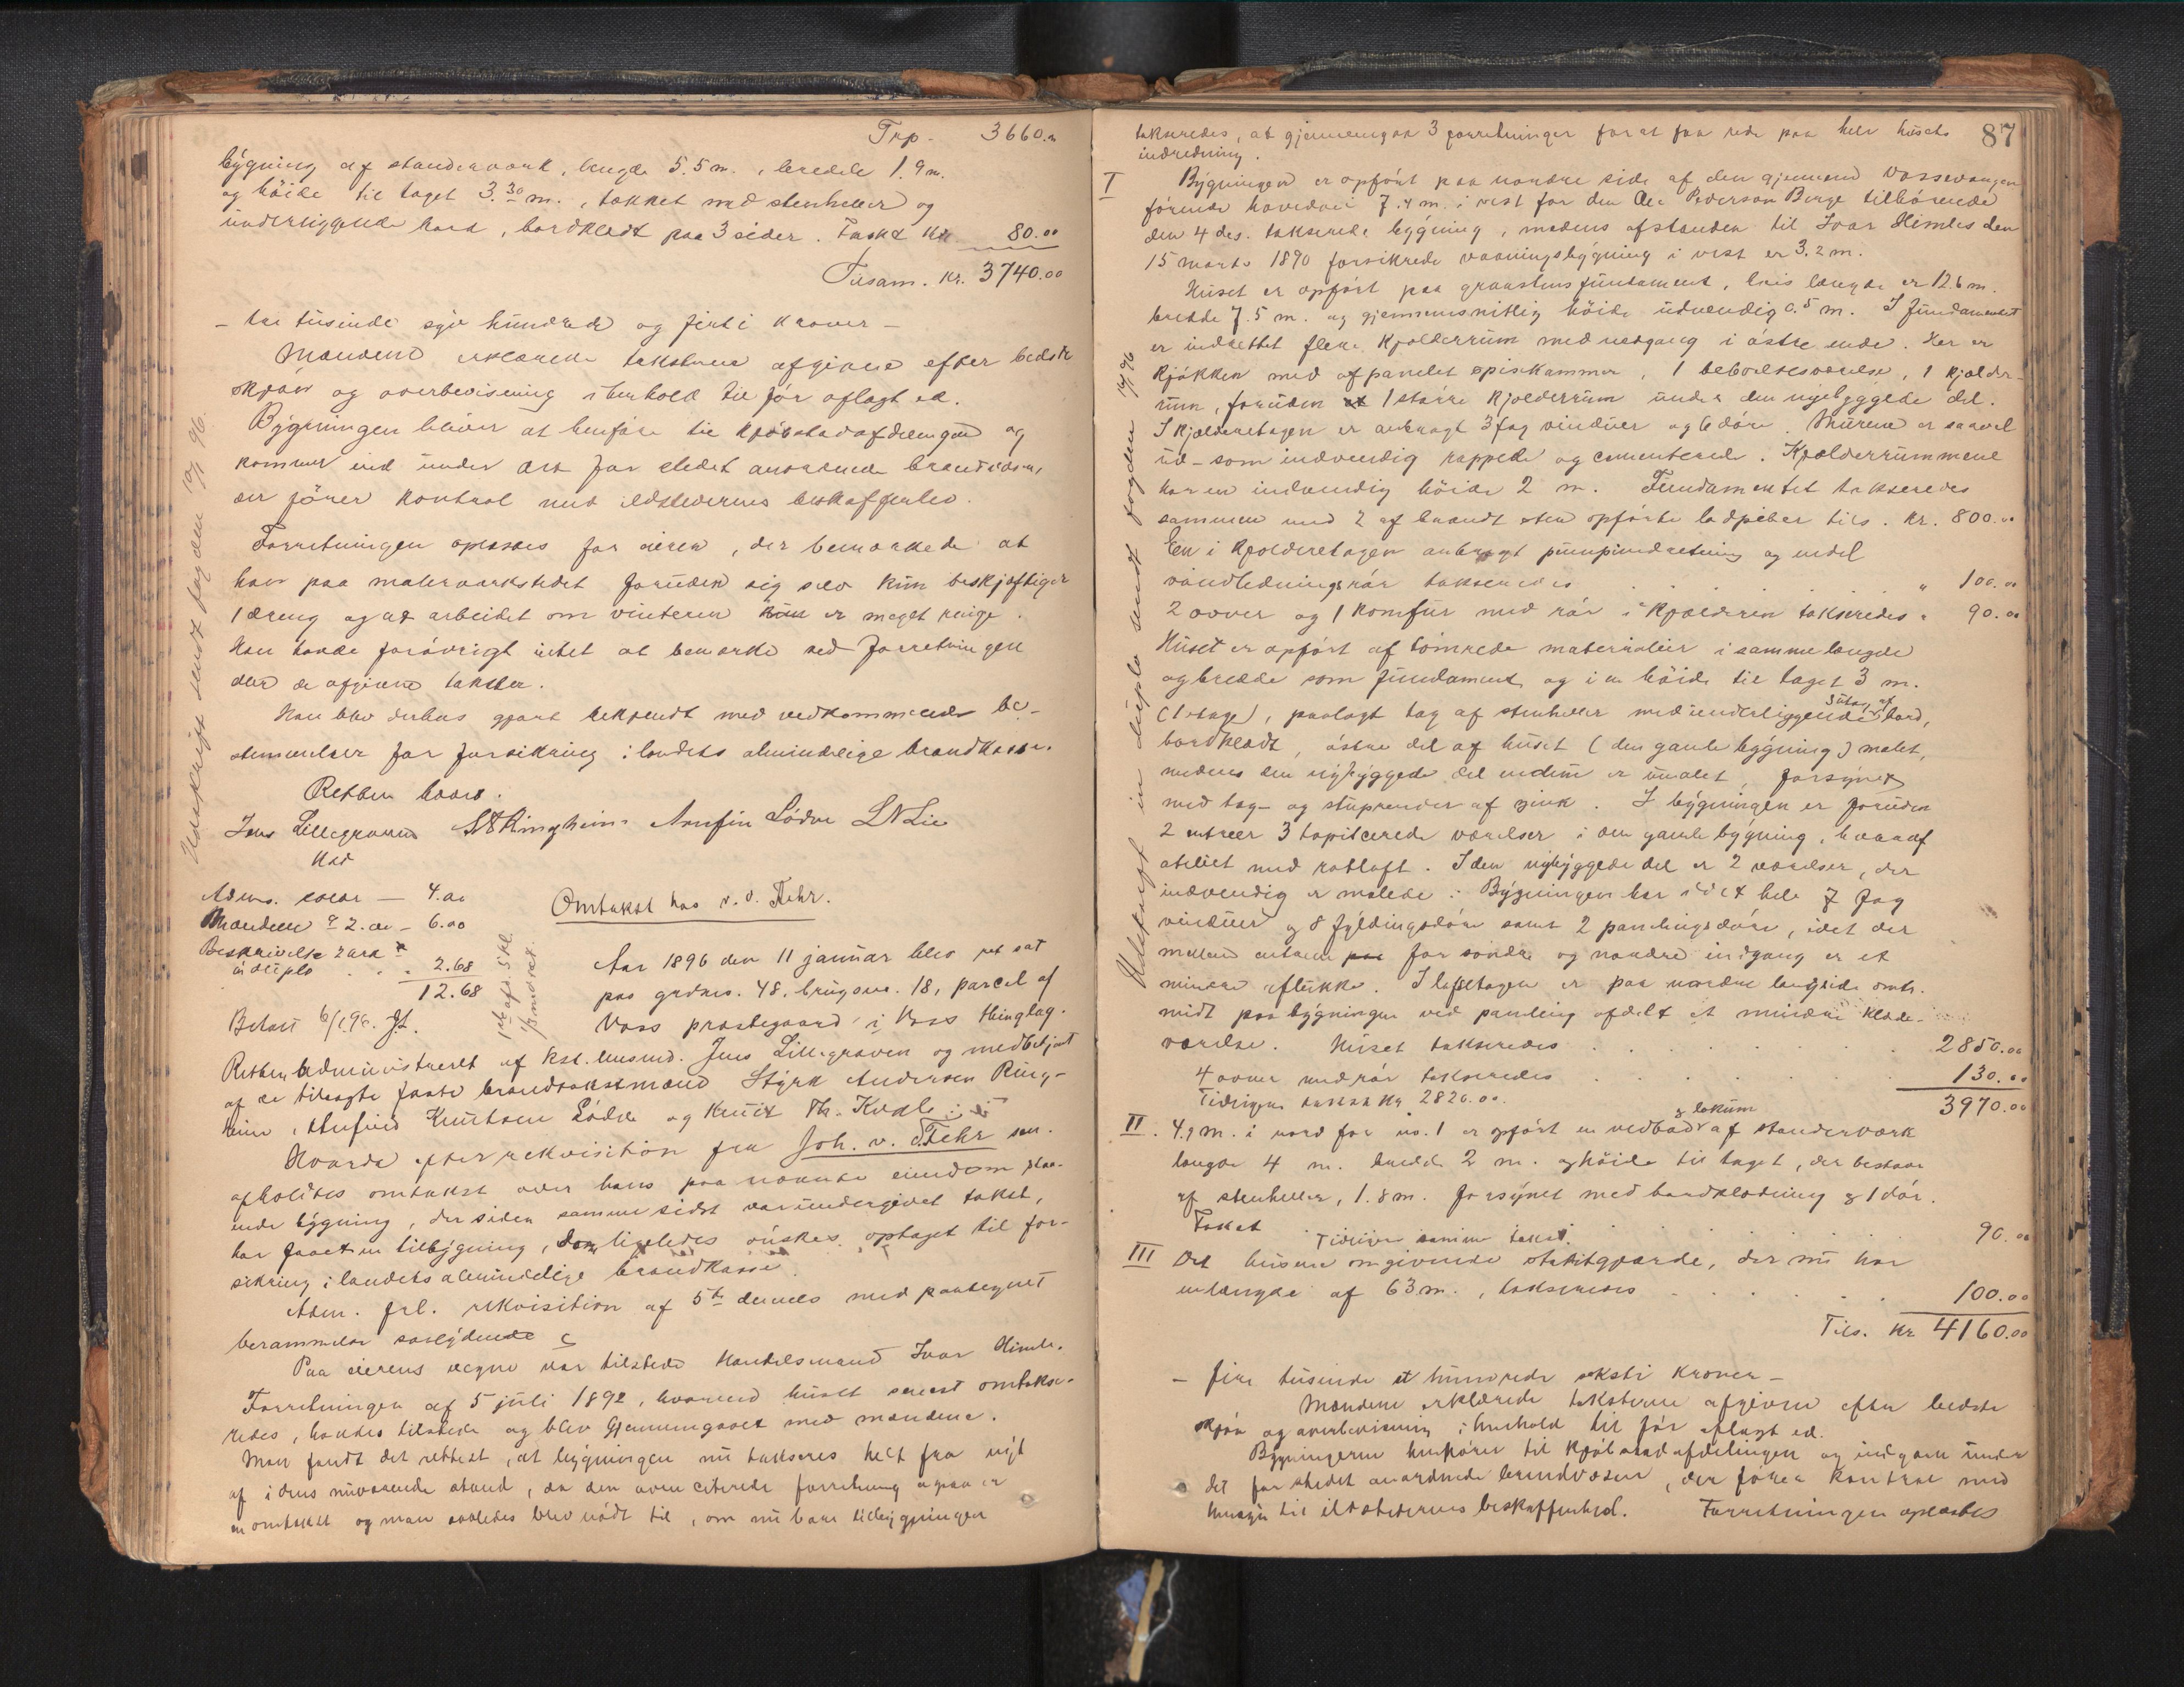 Trp. 3660.00
bygning af standerværk, længde 5.5 m., bredde 1.9 m.
og höide til taget 3.30 m., tækket med stenheller og
underliggende bord, bordklædt paa 3 sider. Takst kr. 80.00
Tilsam. kr. 3740.00
- tre tusinde syv hundrede og firti kroner -
Mændene erklærede taksterne afgivne efter bedste
skjön og overbevisning i henhold til för aflagt ed.
Bygningen bliver at henföre til kjöbstadafdelingen og
kommer ind under det for stedet anordnede brandvæsen,
der förer kontrol med ildstedernes beskaffenhed.
Forretningen oplæstes for eieren, der bemærkede at
han paa malerværkstedet foruden sig selv kun beskjæftiger
1 dreng og at arbeidet om vinteren er meget ringe.
Han havde forövrigt intet at bemærke ved forretningen
eller de afgivne takster.
Han blev derhos gjort bekjendt med vedkommende be-
stemmelser for forsikring i landets almindelige brandkasse.
Retten hævet.
Jens Lillegraven S A Ringheim Arnfin Lödve L N Lie
Udskrift sendt fogden 10/1 96.
Adms. salær — 4.00
Mændene à 2.00 - 6.00
Beskrivelse 2 ark
in duplo . . . 2.68
12.68
Betalt 6/1 96. JL.
Omtakst hos v. d. Fehr.
Aar 1896 den 11 januar blev ret sat
paa grdnes. 48, brugsno. 18, parcel af
Voss prestegaard i Voss thinglag.
Retten administreret af kst. lensmd. Jens Lillegraven og medbetjent
af de tilsagte faste brandtakstmænd Styrk Andersen Ring-
heim, Arnfind Knutsen Lödve og Knut Th. Kvale
Hvorda efter rekvisition fra Joh. v. d. Fehr sen.
afholdtes omtakst over hans paa nævnte eiendom staa-
ende bygning, der siden samme sidst var undergivet takst,
har faaet en tilbygning, som ligeledes önskes optaget til for-
sikring i landets almindelige brandkasse.
Adm. frl. rekvisition af 5te dennes med paategnet
berammelse saalydende
Paa eierens vegne var tilstede Handelsmand Ivar Himle.
Forretningen af 5 juli 1892, hvorved huset senest omtakse-
redes, havdes tilstede og blev gjennemgaaet med mændene.
Man fandt det rettest, at bygningen nu takseres helt fra nyt
af i dens nuværende stand, da den oven citerede forretning ogsaa er
en omtakst og man saaledes blev nödt til, om nu bare tilbygningen
87
takseredes, at gjennemgaa 3 forretninger for at faa rede paa hele husets
indredning.
I Bygningen er opfört paa nordre side af den gjennem Vossevangen
förende hovedvei 7.4 m. i vest for den Ole Pederson Berge tilhörende
den 4 des. takserede bygning, medens afstanden til Ivar Himles den
15 marts 1890 forsikrede vaaningsbygning i vest er 3.2 m.
Huset er opfört paa graastensfundament, hvis længde er 12.6 m.
bredde 7.5 m. og gjennemsnitlig höide udvendig 0.5 m. I fundamentet
er indrettet flere kjælderrum med nedgang i östre ende. Her er
kjökken med afpanelet spiskammer, 1 beboelsesværelse, 1 kjælder-
rum, foruden 1 större kjælderrum under den nybyggede del.
I kjælderetagen er anbragt 3 fag vinduer og 6 döre. Murene er saavel
ud- som indvendig rappede og cementerede. Kjælderrummene
har en indvendig höide 2 m. Fundamentet takseredes
sammen med 2 af brændt sten opförte ladpiber tils. kr. 800.00
En i kjælderetagen anbragt pumpeindretning og endel
vandledningsrör takseredes . . . " 100.00
2 ovner og 1 komfur med rör i kjælderen takseredes " 90.00
Huset er opfört af tömrede materialier i samme længde
og bredde som fundament og i en höide til taget 3 m.
(1 etage), paalagt tag af stenheller med underliggende sutag af bord,
bordklædt, östre del af huset (den gamle bygning) malet,
medens den nybyggede del endnu er umalet, forsynet
med tag- og stuprender af zink. I bygningen er foruden
2 entreer 3 tapitserede værelser i den gamle bygning, hvoraf
ateliet med halvloft. I den nybyggede del er 2 værelser, der
indvendig er malede. Bygningen har i det hele 7 fag
vinduer og 8 fyldingsdöre samt 2 panelingsdöre, idet der
mellem entreerne for söndre og nordre indgang er et
mindre aflukke. I loftetagen er paa nordre langside omtr.
midt paa bygningen ved paneling afdelt et mindre klæde-
værelse. Huset takseredes . . . . . . 2850.00
4 ovner med rör takseredes . . . . . 130.00
Tidligere takst kr. 2820.00. 3970.00
II. 4.9 m. i nord for no. 1 er opfört en vedbod & lokum af standerværk
længde 4 m. bredde 2 m. og höide til taget, der bestaar
af stenheller, 1.8 m. forsynet med bordklædning & 1 dör.
Takst Tidligere samme takst. . . . . 90.00
III Det husene omgivende stakitgjærde, der nu har
en længde af 63 m., takseredes . . . . . 100.00
Tils. kr 4160.00
- fire tusinde et hundrede seksti kroner -
Mændene erklærede taksterne afgivne efter bedste
skjön og overbevisning i henhold til för aflagt ed.
Bygningerne henhörer til kjöbstadafdelingen og indgaar under
det for stedet anordnede brandvæsen, der förer kontrol med
hensyn til ildstedernes beskaffenhed. Forretningen oplæstes
Udskrift in duplo sendt fogden 14/1 96